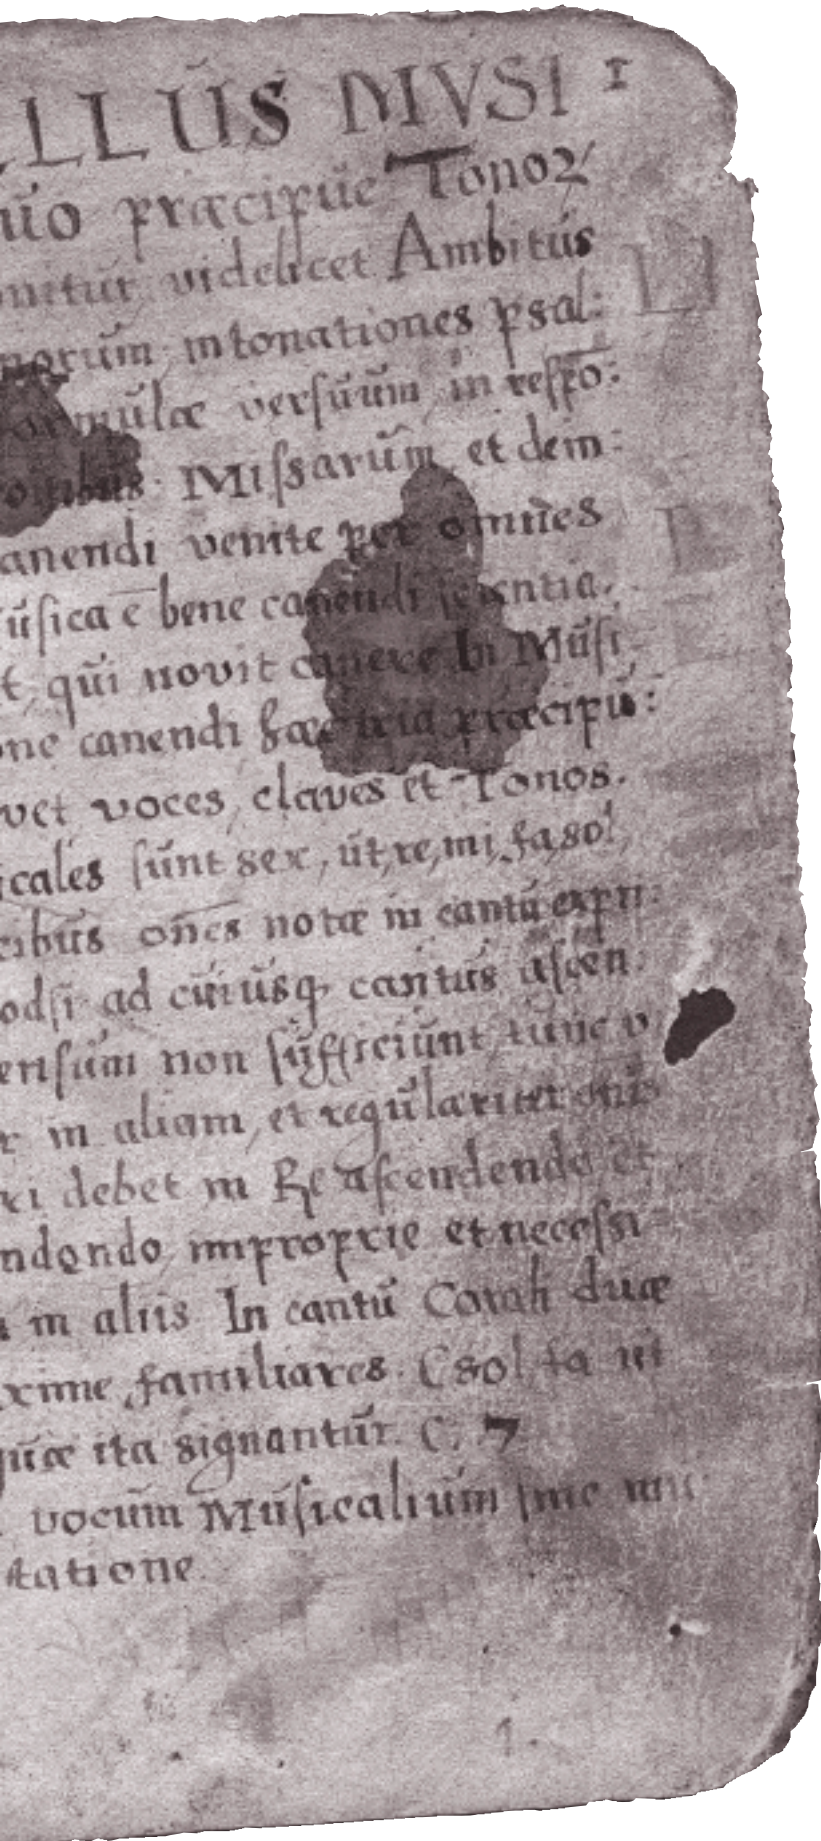 ELLŬS MVSI 1
ŭo præcipŭe Tonoꝝ
onitŭr videlicet Ambitŭs
norŭm intonationes psal:
mŭlæ versŭŭm in respo:
onibŭs. Missarŭm et dein:
canendi venite per omnes
ŭsica ē bene canendi scientia.
t qŭi novit canere In Mŭsi-
one canendi hæc tria præcipŭ:
vet voces, claves et Tonos.
icales sŭnt sex, ŭt, re, mi, fa, sol,
cibŭs oñes notæ in cantŭ expri:
odsi ad cŭiŭsq cantŭs ascen:
ensŭm non sŭfficiŭnt tŭnc
r in aliam, et regŭlariter
xi debet in Re ascendendo et
ndendo improprie et necessi
in aliis In cantŭ Corali dŭæ
xime familiares. C sol fa ut
qŭæ ita signantŭr. C.
vocŭm Mŭsicaliŭm sine mŭ
tatione.
1.